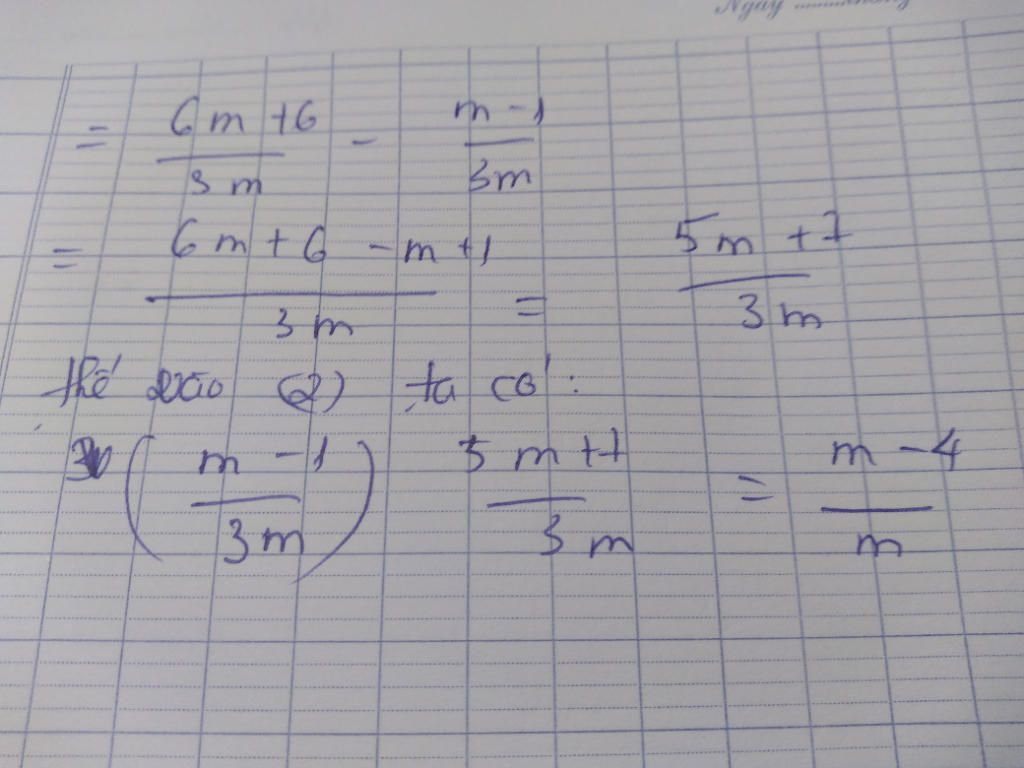 Ngày
= (6m + 6)/(3m) - (m - 1)/(3m)
= (6m + 6 - m + 1)/(3m) = (5m + 7)/(3m)
thế vào (2) ta có:
((m - 1)/(3m)) (5m + 7)/(3m) = (m - 4)/m